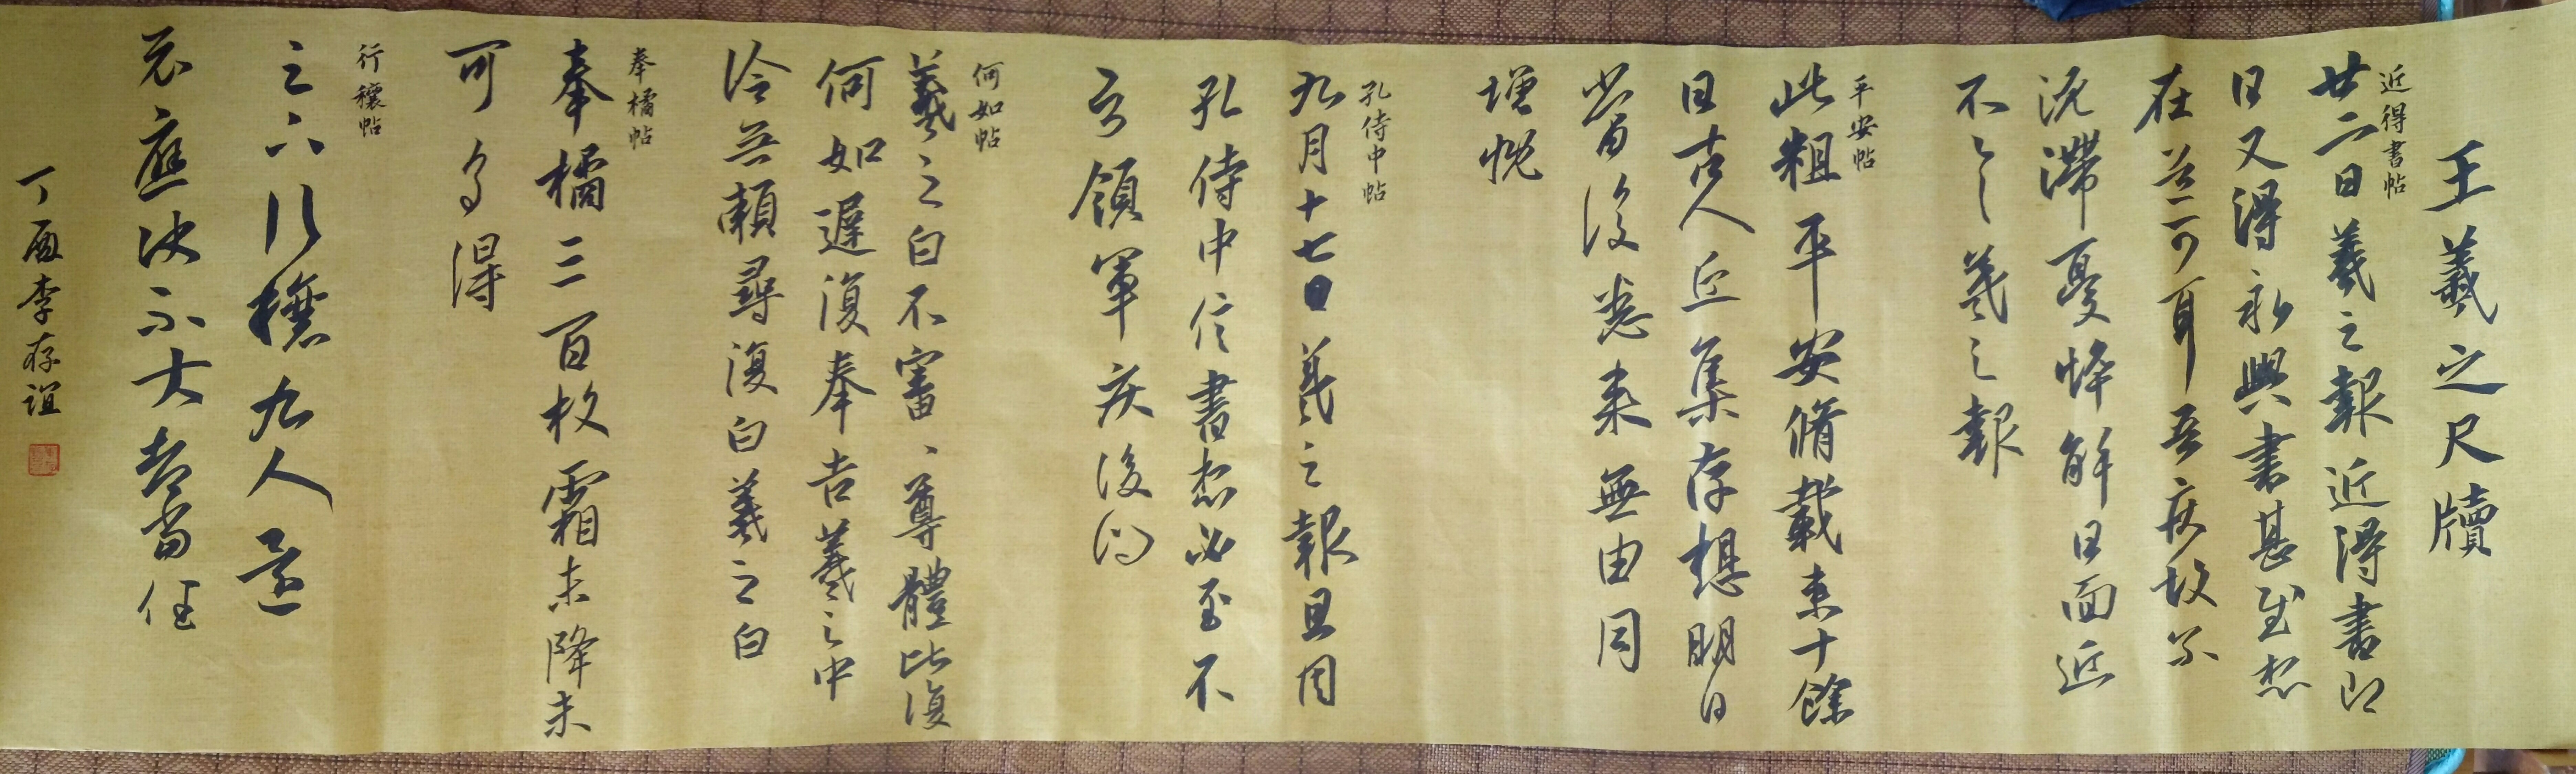 王羲之尺牘
近得書帖
廿二日羲之報近得書即
日又得永興書甚慰想
在道可耳吾疾故爾
沉滯憂悴解日面近
不具羲之報
平安帖
此粗平安脩載來十餘
日古人近集存想明日
當復悉來無由同
增慨
孔侍中帖
九月十七日羲之報且因
孔侍中信書想必至不
知領軍疾後問
何如帖
羲之白不審、尊體比復
何如遲復奉告羲之中
冷無賴尋復白羲之白
奉橘帖
奉橘三百枚霜未降未
可多得
行穰帖
足下行穰九人還
示應決不大都當任
丁酉李存誼